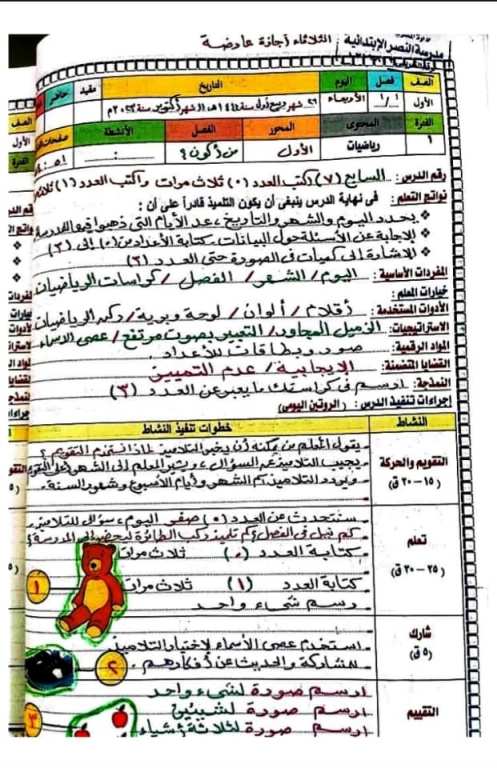 الثلاثاء أجازة عارضة
مدرسة النصر الإبتدائية
الصف فصل اليوم التاريخ مقيد حاضر
الأول ١/أ الأربعاء
الفترة المحتوى المحور الفصل الأنشطة
١ رياضيات الأول من أكون؟ :
رقم الدرس: السابع (٧) اكتب العدد (٠) ثلاث مرات واكتب العدد (١) ثلاث
نواتج التعلم: فى نهاية الدرس ينبغى أن يكون التلميذ قادراً على أن:
يحدد اليوم والشهر والتاريخ، عد الأيام التى ذهبوا فيها المدرسة
الإجابة عن الأسئلة حول البيانات، كتابة الأعداد من (٠) إلى (٢)
الإشارة إلى كميات فى الصورة حتى العدد (٣)
المفردات الأساسية: اليوم / الشهر / الفصل / كراسات الرياضيات
خيارات المعلم:
الأدوات المستخدمة: أقلام / ألوان / لوحة وبرية / ركن الرياضيات
الاستراتيجيات: الزميل المجاور / التعبير بصوت مرتفع / عصى الأسماء
المواد الرقمية: صور وبطاقات للأعداد.
القضايا المتضمنة: الإيجابية / عدم التمييز
النمذجة: ارسم فى كراستك ما يعبر عن العدد (٣)
إجراءات تنفيذ الدرس: (الروتين اليومى)
النشاط خطوات تنفيذ النشاط
التقويم والحركة
(١٥ – ٢٠ ق)
يقول المعلم من يمكنه أن يخبر التلاميذ لماذا نستخدم التقويم؟
يجيب التلاميذ عن السؤال، ويشير المعلم إلى الشهر على
ويردد التلاميذ اسم الشهر وأيام الأسبوع وشهور السنة.
تعلم
(٢٠ – ٢٥ ق)
سنتحدث عن العدد (٠) صفر اليوم، سؤال للتلاميذ
كم فيل فى الفصل، كم تلميذ ركب الطائرة ليحضر إلى المدرسة؟
كتابة العدد (٠) ثلاث مرات
كتابة العدد (١) ثلاث مرات
رسم شىء واحد
١
شارك
(٥ ق)
استخدم عصى الأسماء لاختيار التلاميذ
للمشاركة والحديث عن أفكارهم.
٢
التقييم
ارسم صورة لشىء واحد
ارسم صورة لشيئين
ارسم صورة لثلاثة أشياء
٣